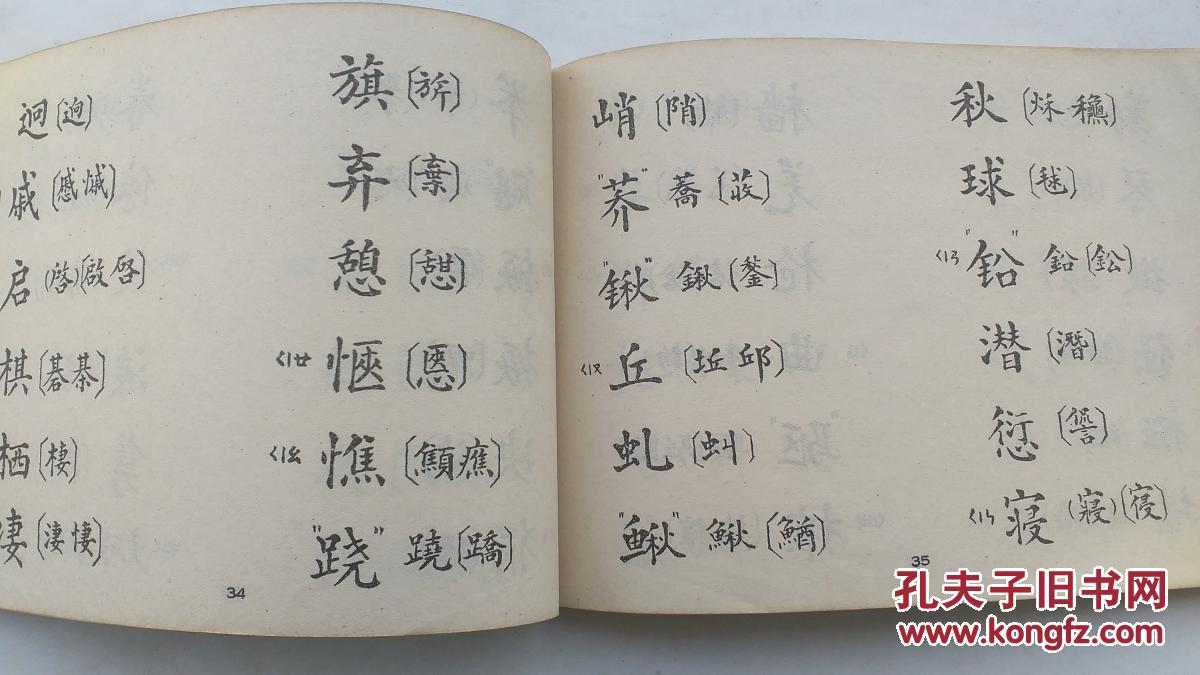 迥〔逈〕
戚〔慼慽〕
启(啓)〔啟啔〕
棋〔碁棊〕
栖〔棲〕
凄〔淒悽〕
旗〔旂〕
弃〔棄〕
憩〔憇〕
ㄑㄧㄝ 惬〔愜〕
ㄑㄧㄠ 憔〔顦癄〕
"跷" 蹺〔蹻〕
34
峭〔陗〕
"荞" 蕎〔荍〕
"锹" 鍬〔鍫〕
ㄑㄧㄡ 丘〔坵邱〕
虬〔虯〕
"鳅" 鰍〔鰌〕
秋〔秌龝〕
球〔毬〕
ㄑㄧㄢ "铅" 鉛〔鈆〕
潜〔潛〕
愆〔諐〕
ㄑㄧㄣ 寝(寢)〔寑〕
35
孔夫子旧书网
www.kongfz.com